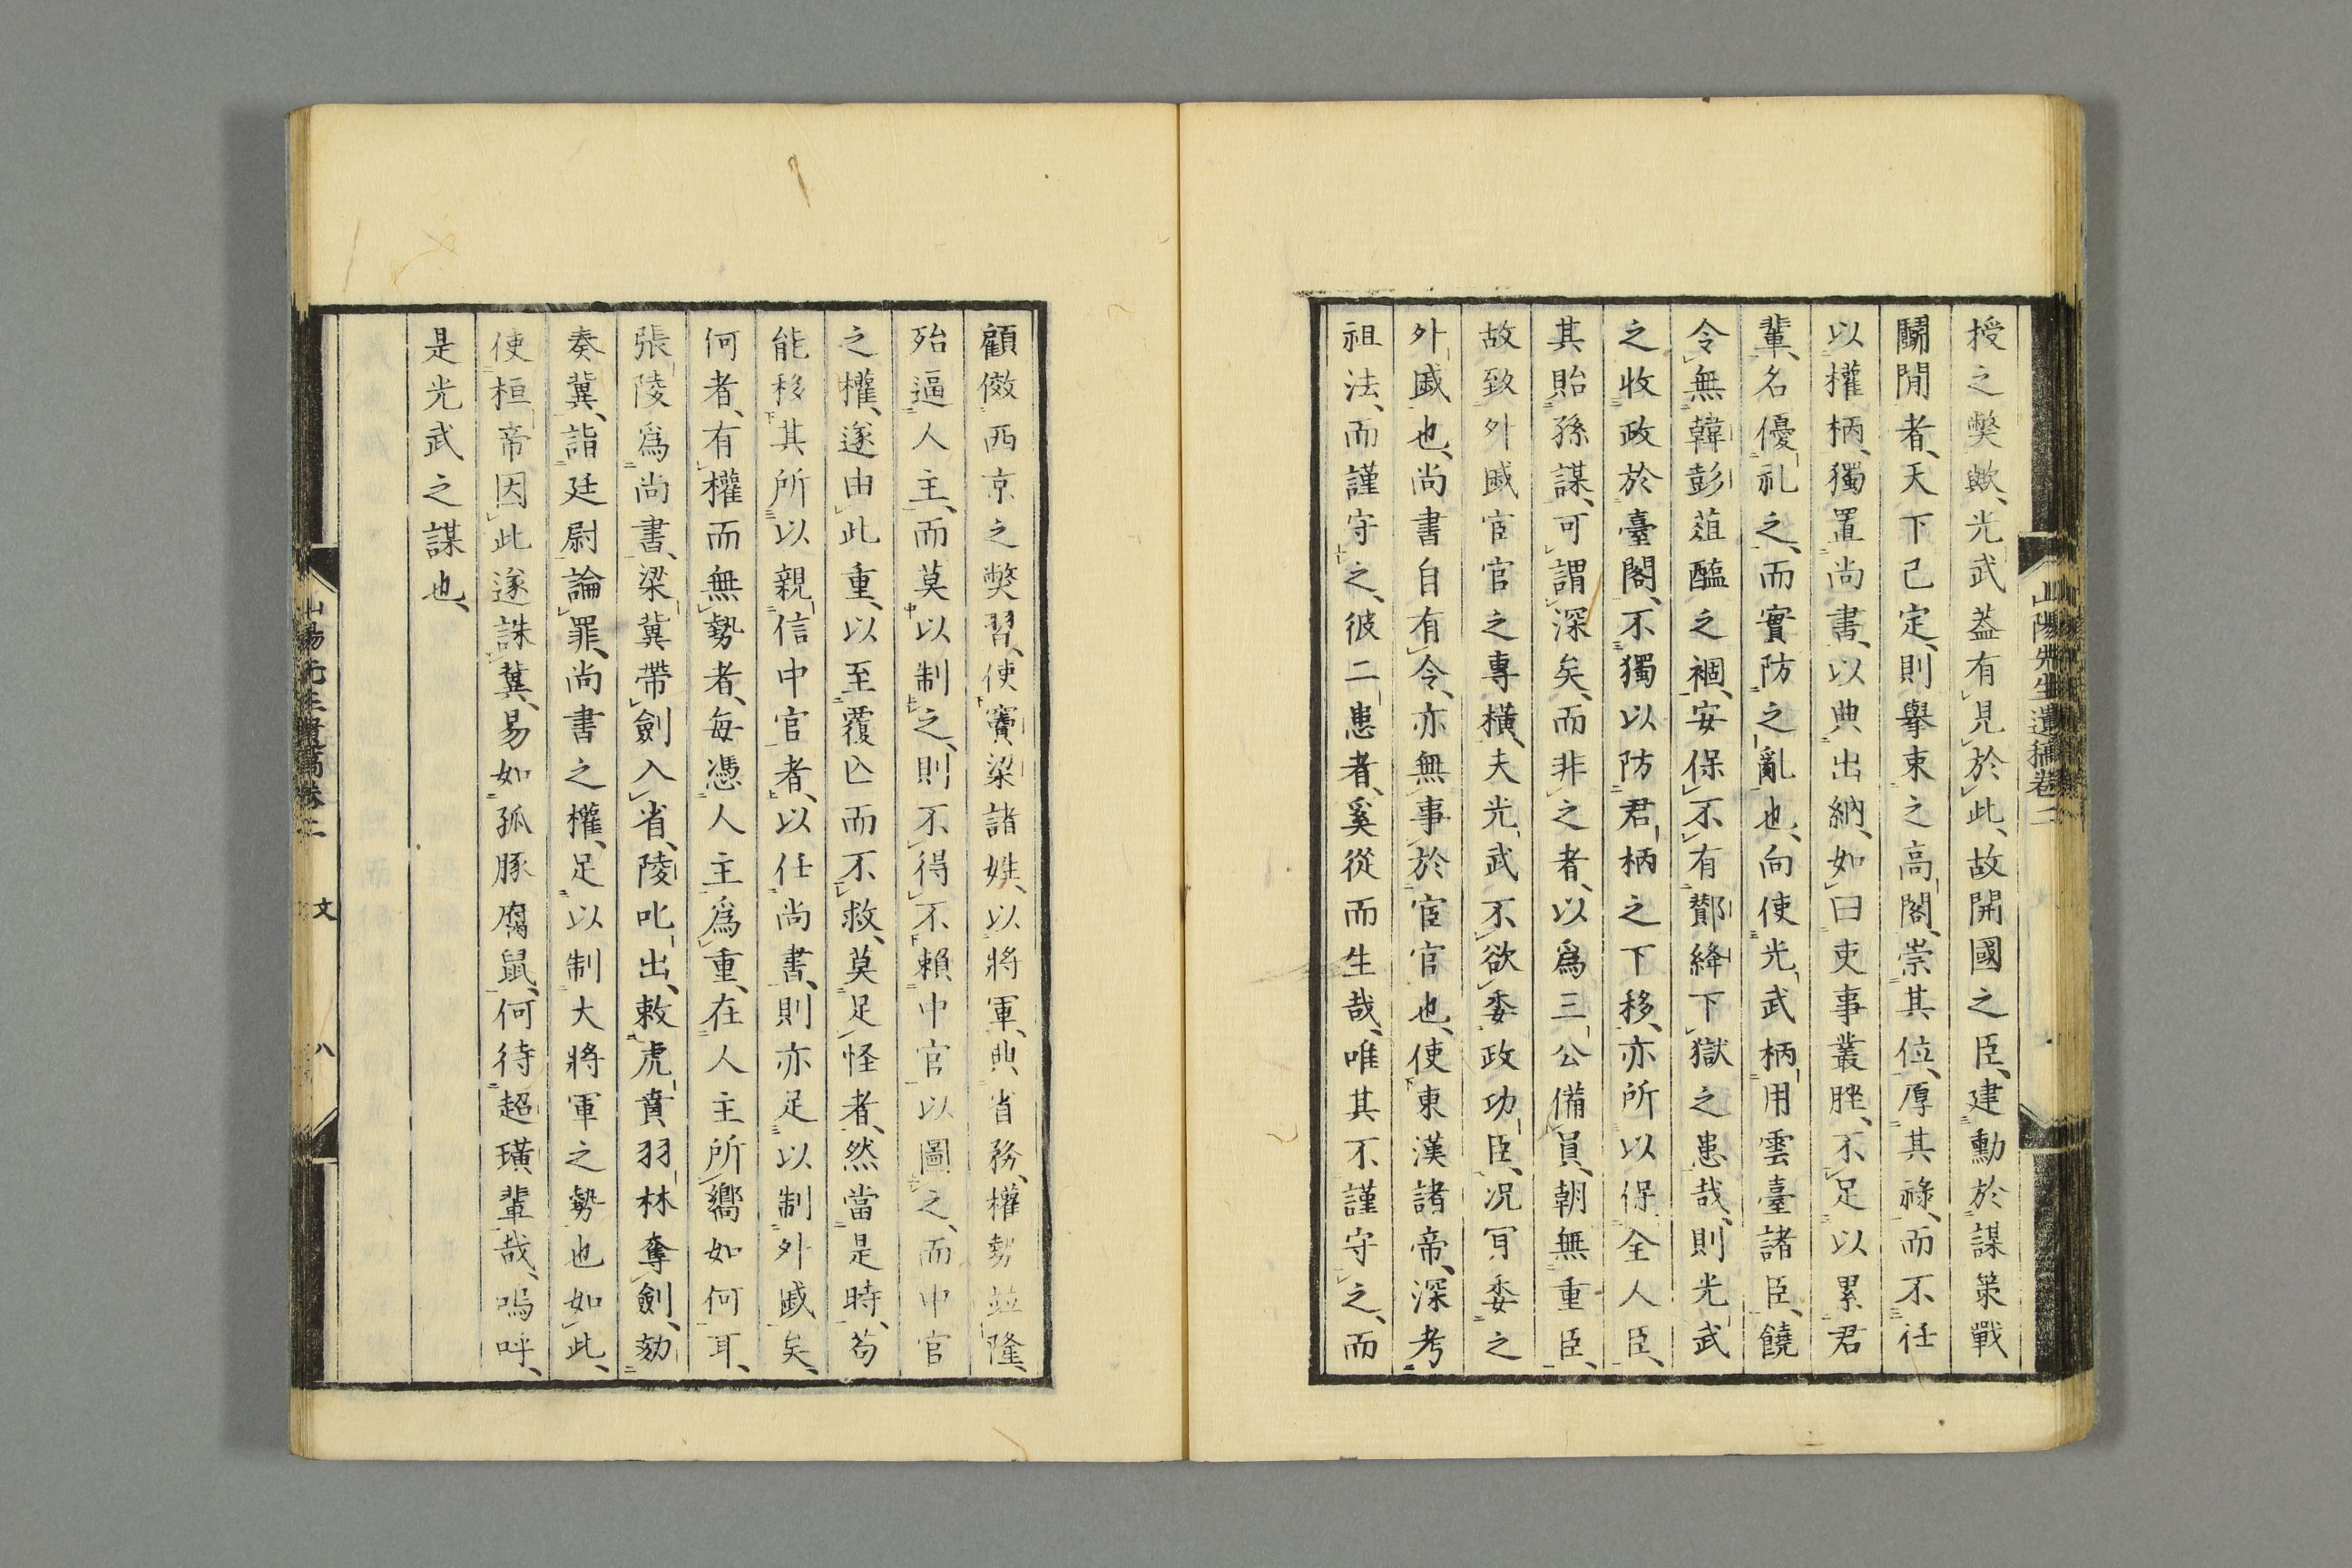 山陽先生遺稿卷二
授之弊歟、光武蓋有見於此、故開國之臣、建勳於謀策戰
鬭閒者、天下已定、則擧束之高閣、崇其位、厚其祿、而不任
以權柄、獨置尚書、以典出納、如曰吏事叢脞、不足以累君
輩、名優礼之、而實防之亂也、向使光武柄用雲臺諸臣、饒
令無韓彭葅醢之禍、安保不有酇絳下獄之患哉、則光武
之收政於臺閣、不獨以防君柄之下移、亦所以保全人臣、
其貽孫謀、可謂深矣、而非之者、以爲三公備員、朝無重臣、
故致外戚宦官之專橫、夫光武不欲委政功臣、况肎委之
外戚也、尚書自有令、亦無事於宦官也、使東漢諸帝、深考
祖法、而謹守之、彼二患者、奚從而生哉、唯其不謹守之、而
顧倣西京之弊習、使竇梁諸姓、以將軍、典省務、權勢並隆、
殆逼人主、而莫以制之、則不得不賴中官以圖之、而中官
之權、遂由此重、以至覆亾而不救、莫足怪者、然當是時、苟
能移其所以親信中官者、以任尚書、則亦足以制外戚矣、
何者、有權而無勢者、每憑人主爲重、在人主所嚮如何耳、
張陵爲尚書、梁冀帶劍入省、陵叱出、敕虎賁羽林奪劍、劾
奏冀、詣廷尉論罪、尚書之權、足以制大將軍之勢也如此、
使桓帝因此遂誅冀、易如孤豚腐鼠、何待超璜輩哉、嗚呼、
是光武之謀也、
山陽先生遺稿卷二 文 八